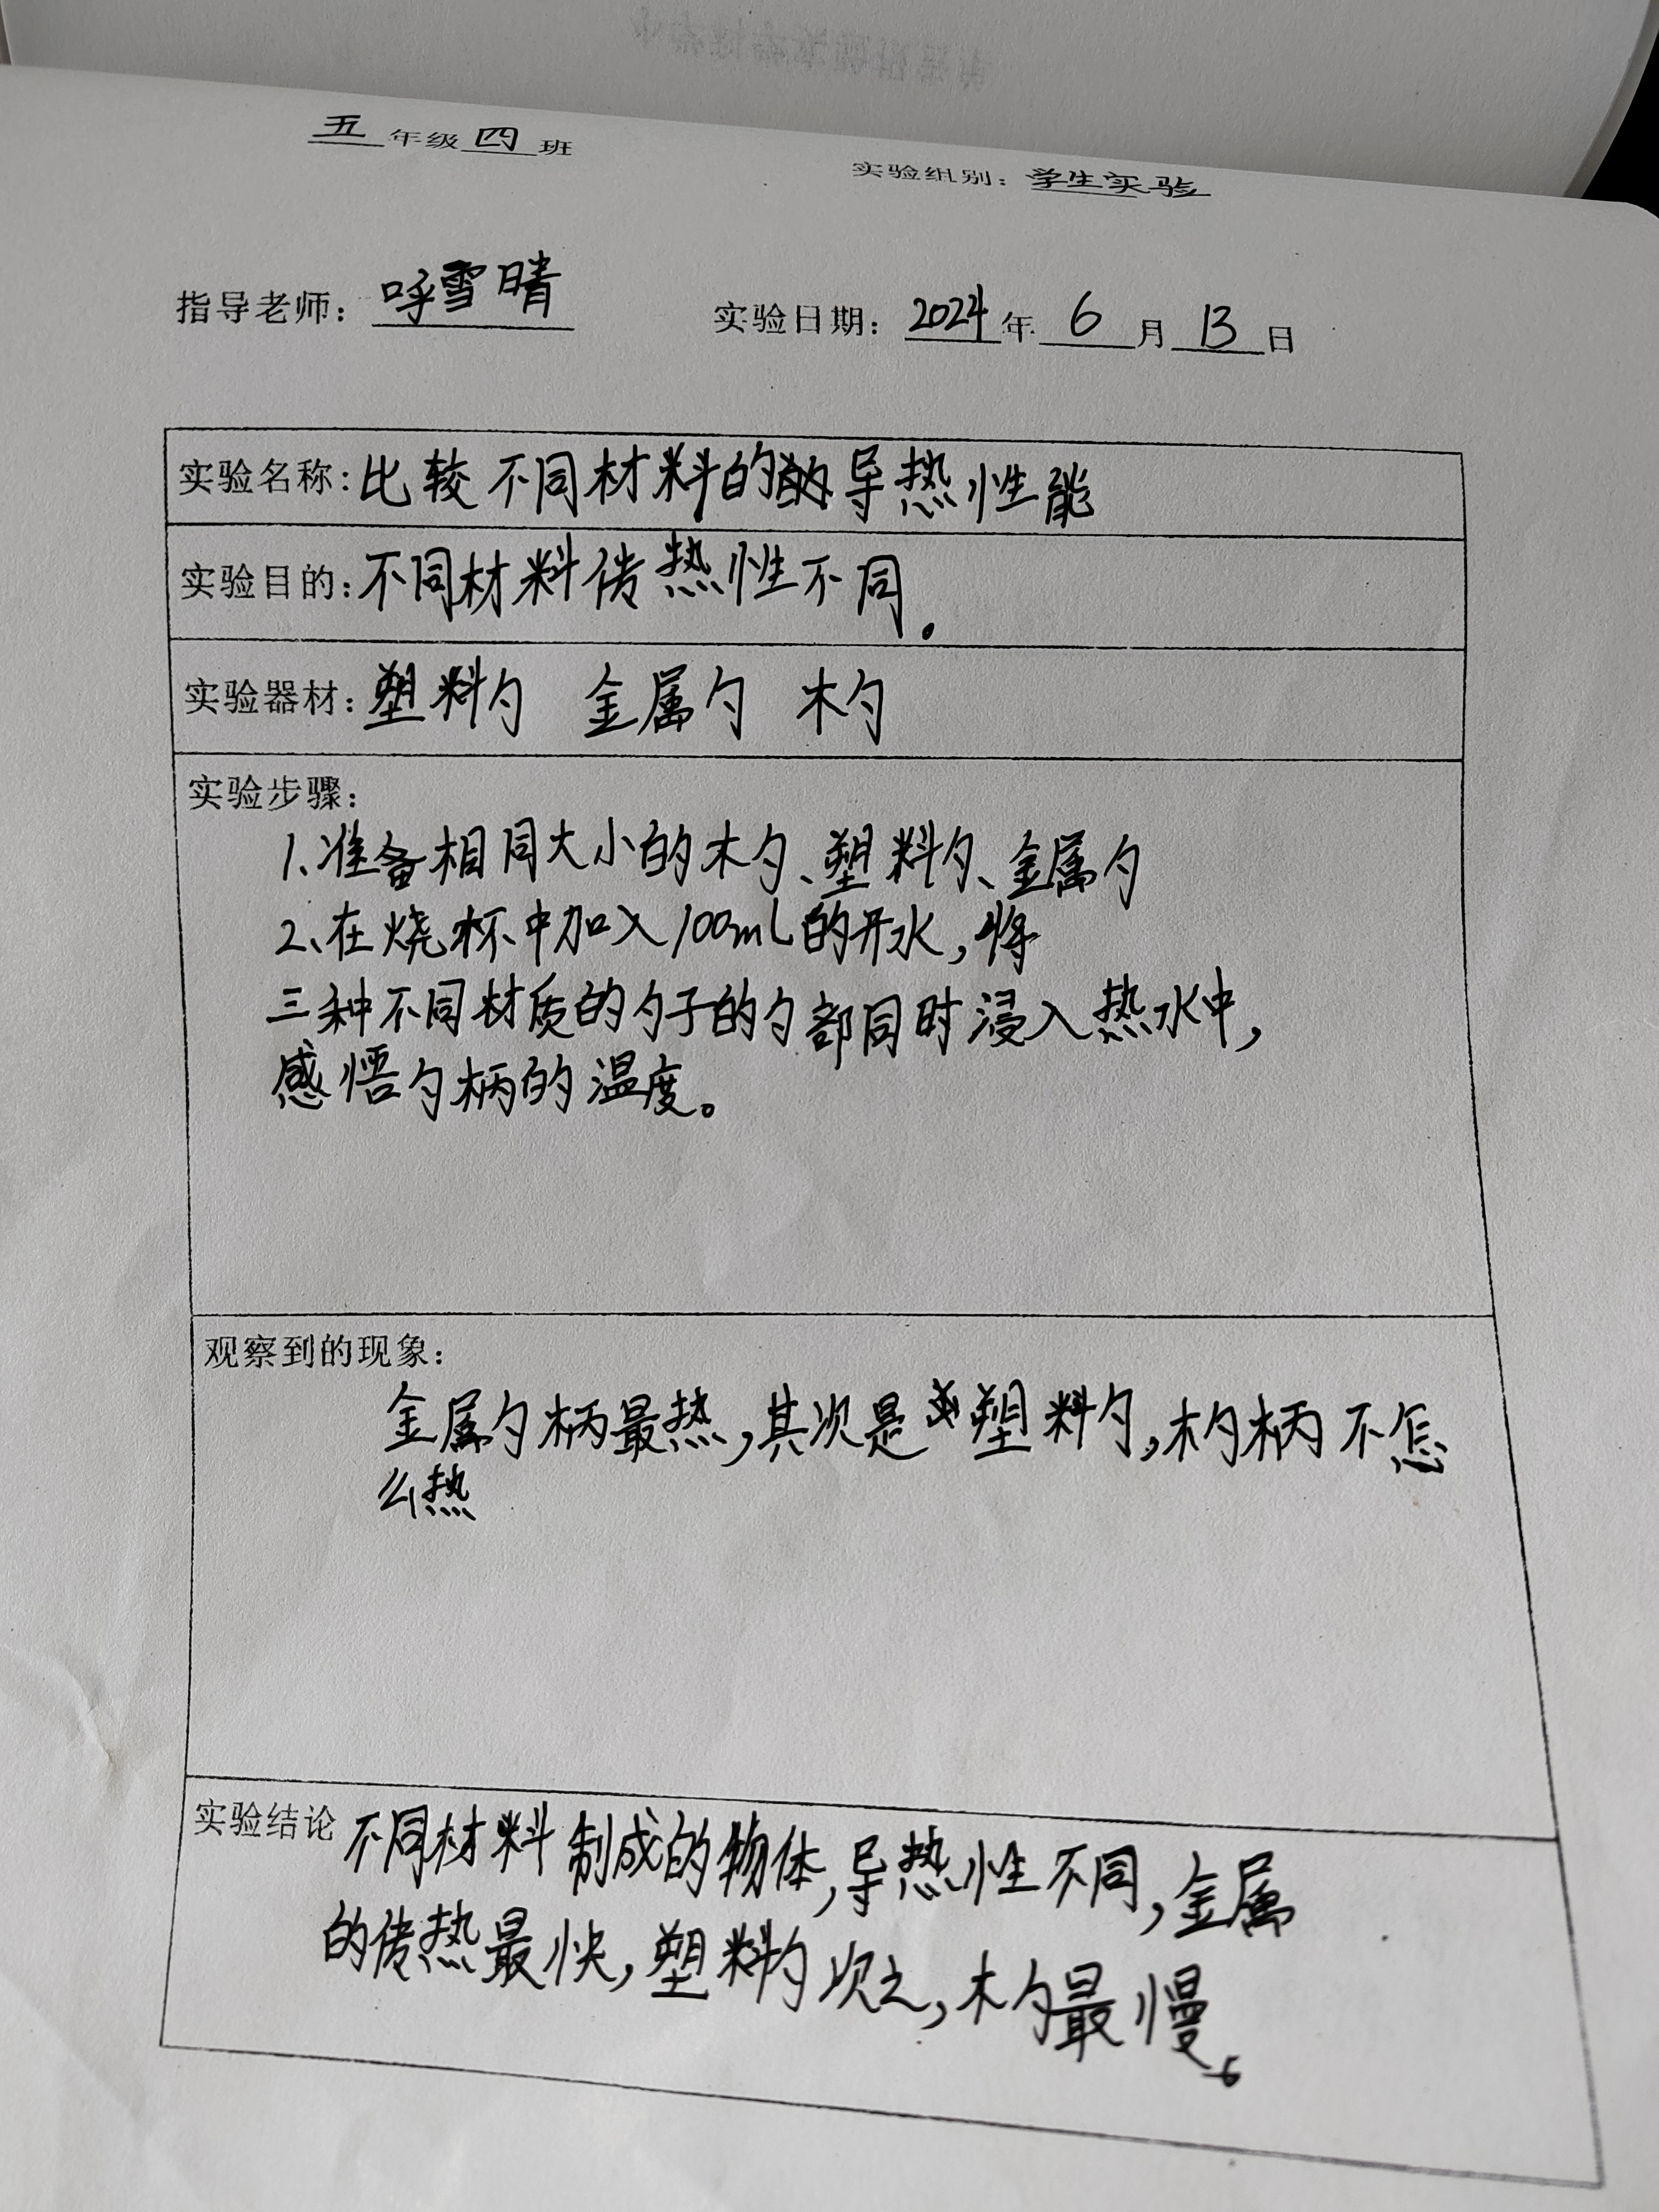 五年级四班
实验组别：学生实验
指导老师：呼雪晴
实验日期：2024年6月13日
实验名称：比较不同材料的导热性能
实验目的：不同材料传热性不同。
实验器材：塑料勺 金属勺 木勺
实验步骤：
1、准备相同大小的木勺、塑料勺、金属勺
2、在烧杯中加入100mL的开水，将
三种不同材质的勺子的勺部同时浸入热水中，
感悟勺柄的温度。
观察到的现象：
金属勺柄最热，其次是塑料勺，木勺柄不怎
么热
实验结论 不同材料制成的物体，导热性不同，金属
的传热最快，塑料勺次之，木勺最慢。